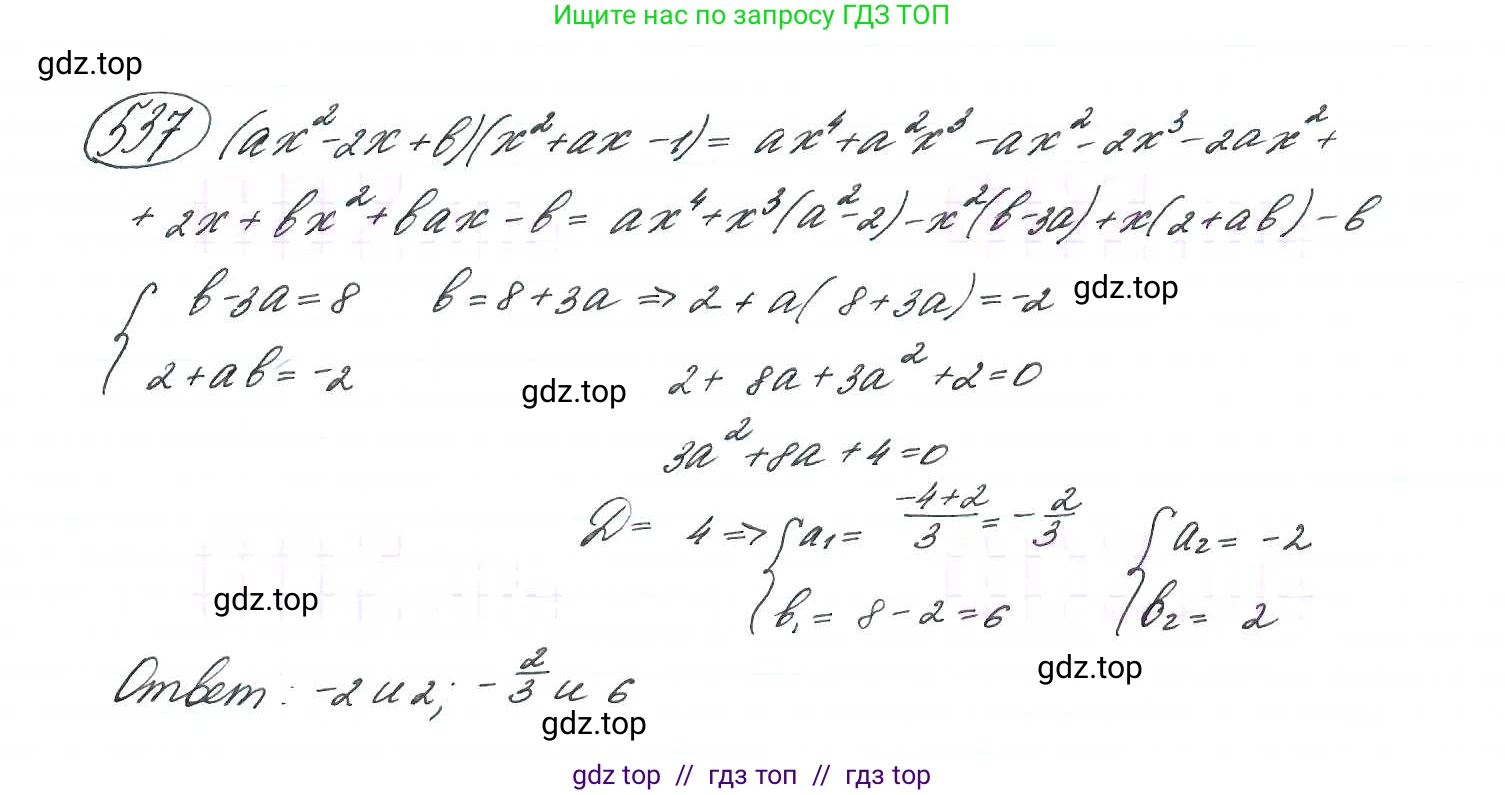 Ищите нас по запросу ГДЗ ТОП
gdz.top
537 (ax²-2x+b)(x²+ax-1)= ax⁴+a²x³-ax²-2x³-2ax²+
+2x+bx²+bax-b= ax⁴+x³(a²-2)-x²(b-3a)+x(2+ab)-b
{ b-3a=8 b=8+3a => 2+a(8+3a)=-2 gdz.top
2+ab=-2 gdz.top 2+8a+3a²+2=0
3a²+8a+4=0
D= 4 => { a₁= (-4+2)/3 = -2/3 { a₂= -2
gdz.top b₁= 8-2=6 b₂= 2
gdz.top
Ответ: -2 и 2; -2/3 и 6
gdz.top
gdz top // гдз топ // гдз top